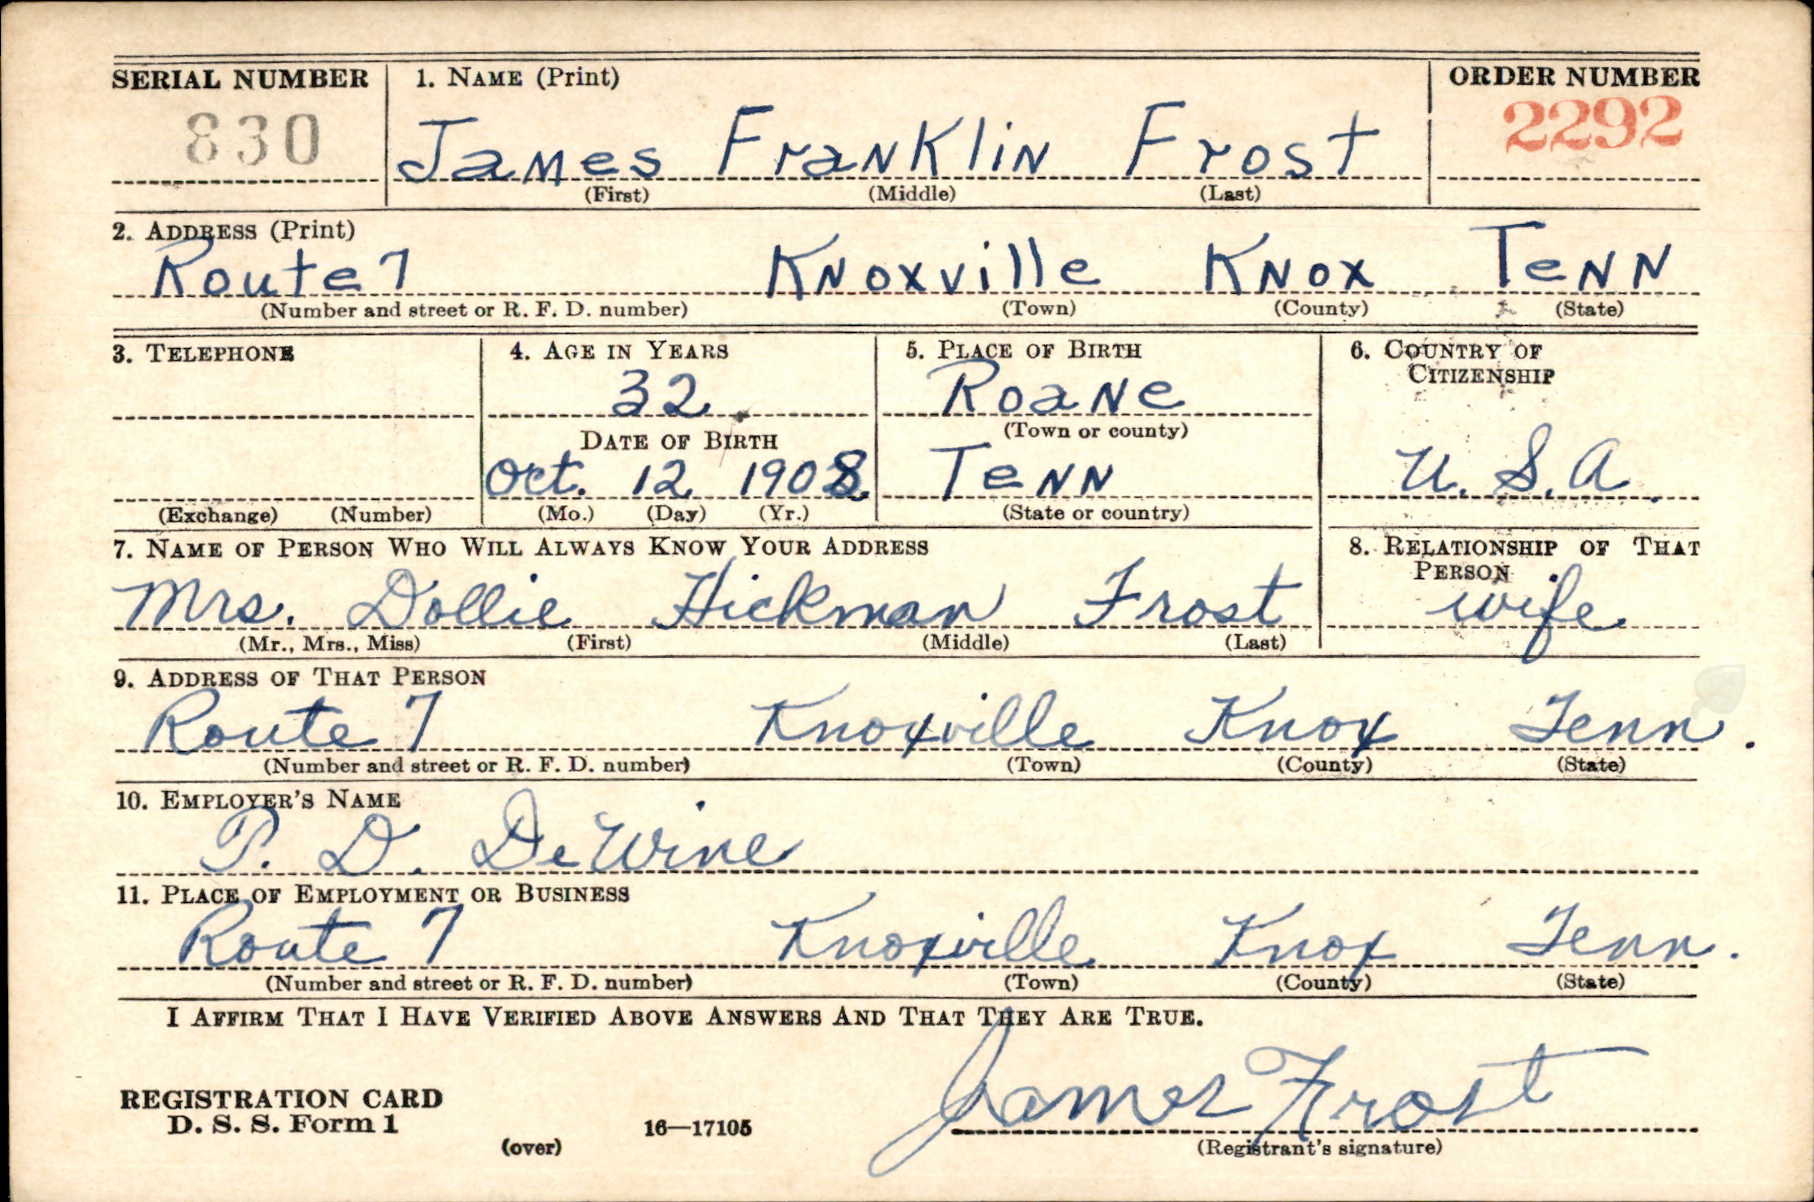 SERIAL NUMBER 1. NAME (Print) ORDER NUMBER
830 James Franklin Frost 2292
(First) (Middle) (Last)
2. ADDRESS (Print)
Route 7 Knoxville Knox Tenn
(Number and street or R. F. D. number) (Town) (County) (State)
3. TELEPHONE 4. AGE IN YEARS 5. PLACE OF BIRTH 6. COUNTRY OF
CITIZENSHIP
32 Roane
(Town or county)
DATE OF BIRTH
Oct. 12 1908 Tenn U. S. A.
(Exchange) (Number) (Mo.) (Day) (Yr.) (State or country)
7. NAME OF PERSON WHO WILL ALWAYS KNOW YOUR ADDRESS 8. RELATIONSHIP OF THAT
PERSON
Mrs. Dollie Hickman Frost wife
(Mr., Mrs., Miss) (First) (Middle) (Last)
9. ADDRESS OF THAT PERSON
Route 7 Knoxville Knox Tenn.
(Number and street or R. F. D. number) (Town) (County) (State)
10. EMPLOYER'S NAME
P. D. DeWine
11. PLACE OF EMPLOYMENT OR BUSINESS
Route 7 Knoxville Knox Tenn.
(Number and street or R. F. D. number) (Town) (County) (State)
I AFFIRM THAT I HAVE VERIFIED ABOVE ANSWERS AND THAT THEY ARE TRUE.
James Frost
REGISTRATION CARD
D. S. S. Form 1
(over) 16—17105 (Registrant's signature)